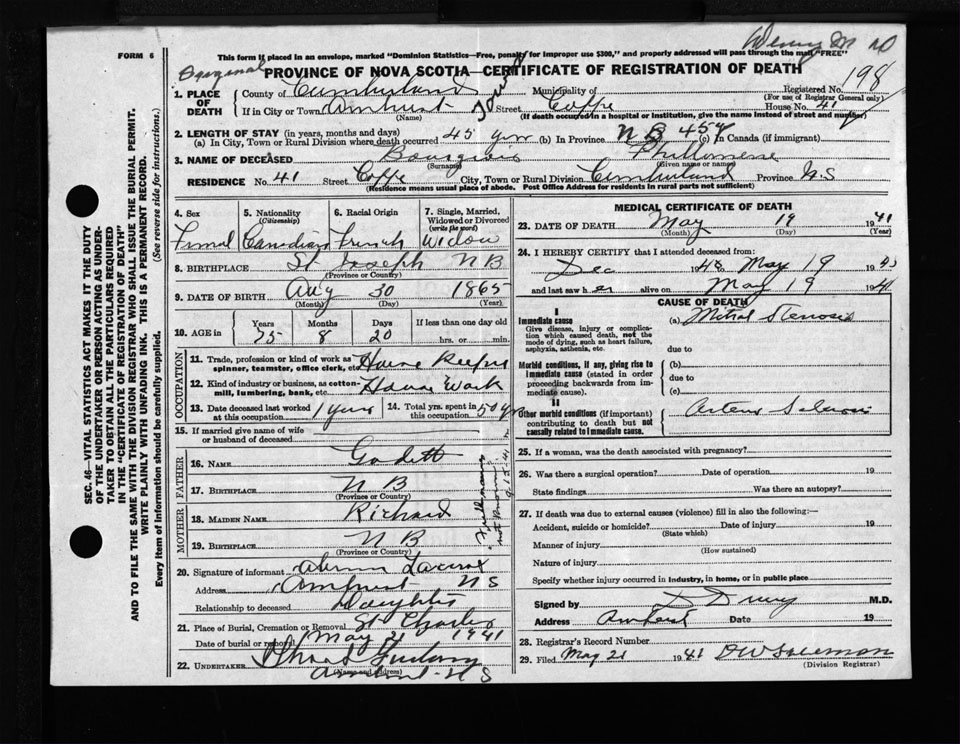 FORM 6
This form if placed in an envelope, marked "Dominion Statistics—Free, penalty for improper use $300," and property addressed will pass through the mail "FREE"
Original PROVINCE OF NOVA SCOTIA—CERTIFICATE OF REGISTRATION OF DEATH
1. PLACE OF DEATH County of Cumberland Municipality of Registered No. 198
(For use of Registrar General only)
If in City or Town Amherst (Name) Street Copp House No. 41
(If death occurred in a hospital or institution, give the name instead of street and number)
2. LENGTH OF STAY (in years, months and days)
(a) In City, Town or Rural Division where death occurred 45 yrs (b) In Province N B 45 y (c) In Canada (if immigrant)
3. NAME OF DECEASED Bourgeois (Surname) Philomene (Given name or names)
RESIDENCE No. 41 Street Copp City, Town or Rural Division Cumberland Province N.S
(Residence means usual place of abode. Post Office Address for residents in rural parts not sufficient)
4. Sex Femal
5. Nationality (Citizenship) Canadian
6. Racial Origin French
7. Single, Married, Widowed or Divorced (write the word) Widow
8. BIRTHPLACE St Joseph N B
(Province or Country)
9. DATE OF BIRTH Aug 30 1865
(Month) (Day) (Year)
10. AGE in Years 75 Months 8 Days 20 If less than one day old hrs. or min.
OCCUPATION
11. Trade, profession or kind of work as spinner, teamster, office clerk, etc. House Keeper
12. Kind of industry or business, as cotton-mill, lumbering, bank, etc. House Work
13. Date deceased last worked at this occupation 1 year
14. Total yrs. spent in this occupation 50 yrs
15. If married give name of wife or husband of deceased
FATHER
16. NAME Godett
17. BIRTHPLACE N B
(Province or Country)
MOTHER
18. MAIDEN NAME Richard
19. BIRTHPLACE N B
(Province or Country)
20. Signature of informant
Address Amherst N S
Relationship to deceased Daughter
21. Place of Burial, Cremation or Removal St Charles
Date of burial or removal May 21 1941
22. UNDERTAKER
(Name and address) Amherst N S
MEDICAL CERTIFICATE OF DEATH
23. DATE OF DEATH May 19 1941
(Month) (Day) (Year)
24. I HEREBY CERTIFY that I attended deceased from:
Dec 1940 to May 19 194
and last saw h er alive on May 19 1941
CAUSE OF DEATH
I
Immediate cause
Give disease, injury or complication which caused death, not the mode of dying, such as heart failure, asphyxia, asthenia, etc.
(a) Mitral Stenosis
due to
Morbid conditions, if any, giving rise to immediate cause (stated in order proceeding backwards from immediate cause).
(b)
due to
(c)
II
Other morbid conditions (if important) contributing to death but not causally related to immediate cause.
Arterio Sclerosis
25. If a woman, was the death associated with pregnancy?
26. Was there a surgical operation? Date of operation 19
State findings Was there an autopsy?
27. If death was due to external causes (violence) fill in also the following:—
Accident, suicide or homicide? Date of injury 19
(State which)
Manner of injury
(How sustained)
Nature of injury
Specify whether injury occurred in industry, in home, or in public place
Signed by D Drury M.D.
Address Amherst Date 19
28. Registrar's Record Number
29. Filed May 21 1941
(Division Registrar)
SEC. 46—VITAL STATISTICS ACT MAKES IT THE DUTY
OF THE UNDERTAKER OR PERSON ACTING AS UNDER-
TAKER TO OBTAIN ALL THE PARTICULARS REQUIRED
IN THE "CERTIFICATE OF REGISTRATION OF DEATH"
AND TO FILE THE SAME WITH THE DIVISION REGISTRAR WHO SHALL ISSUE THE BURIAL PERMIT.
WRITE PLAINLY WITH UNFADING INK. THIS IS A PERMANENT RECORD.
Every item of information should be carefully supplied. (See reverse side for instructions.)